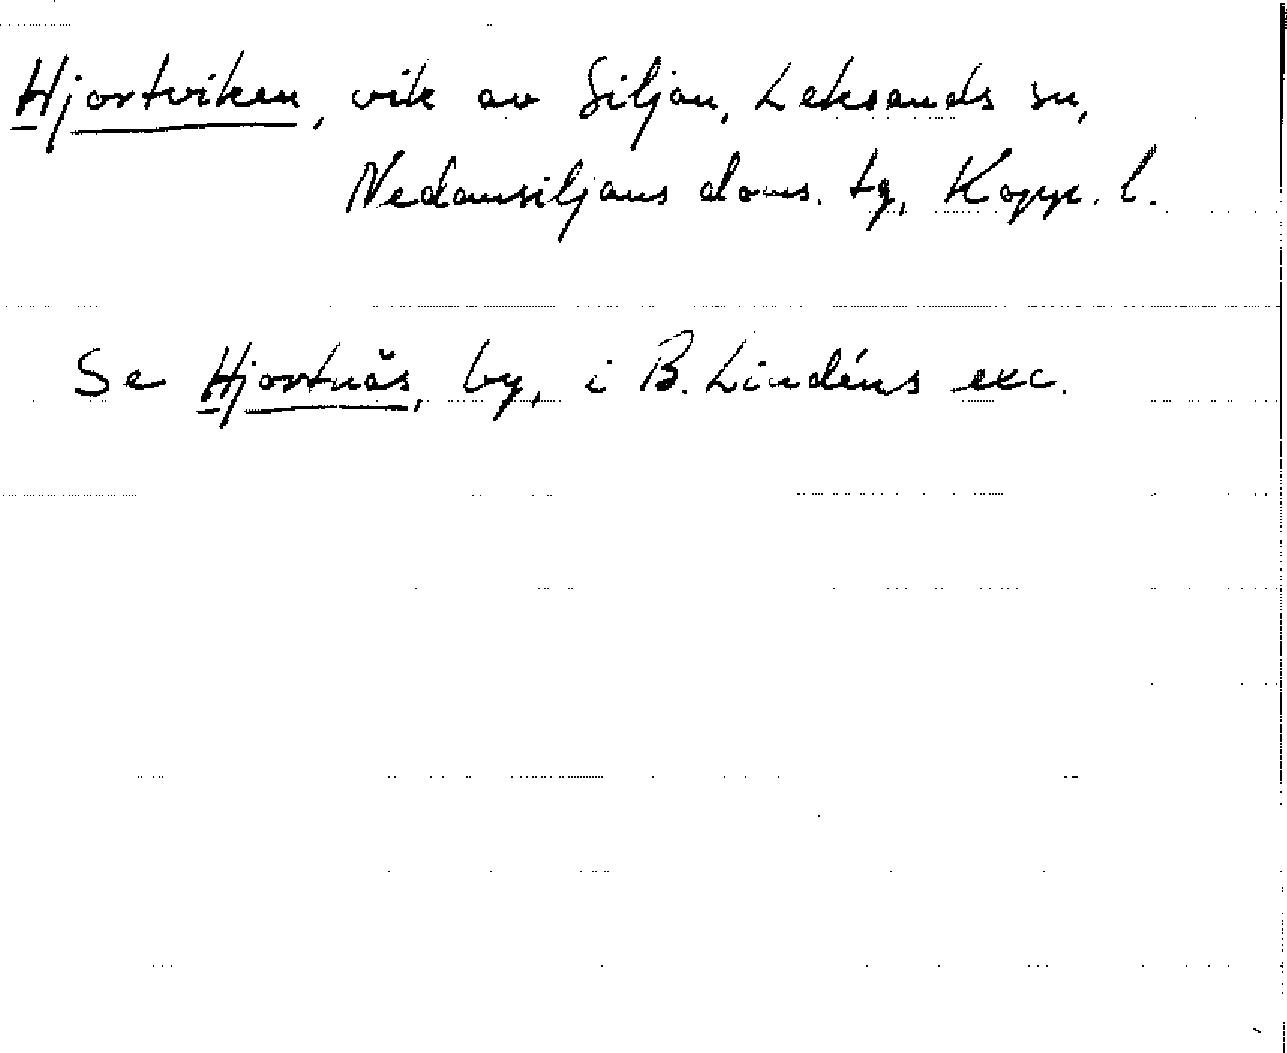 Hjortviken, vik av Siljan, Leksands sn,
Nedansiljans doms. tg, Kopp. l.
Se Hjortnäs, by, i B. Lindéns exc.